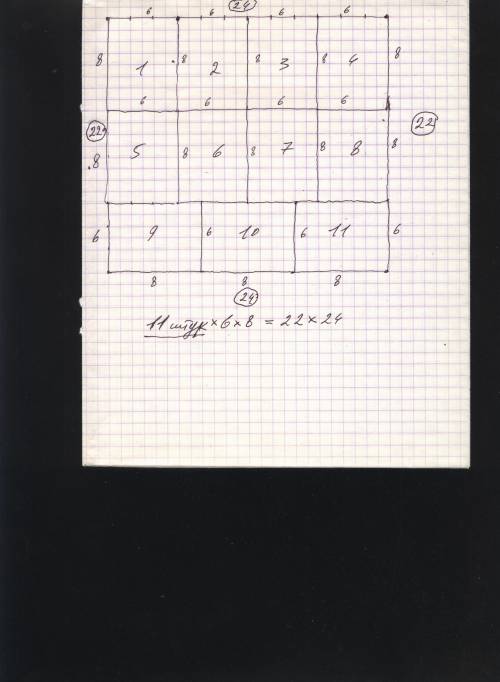 24
6 6 6 6
8 1 8 2 8 3 8 4 8
6 6 6 6
22 22
8 5 8 6 8 7 8 8 8
6 9 6 10 6 11 6
8 8 8
24
11 штук × 6 × 8 = 22 × 24